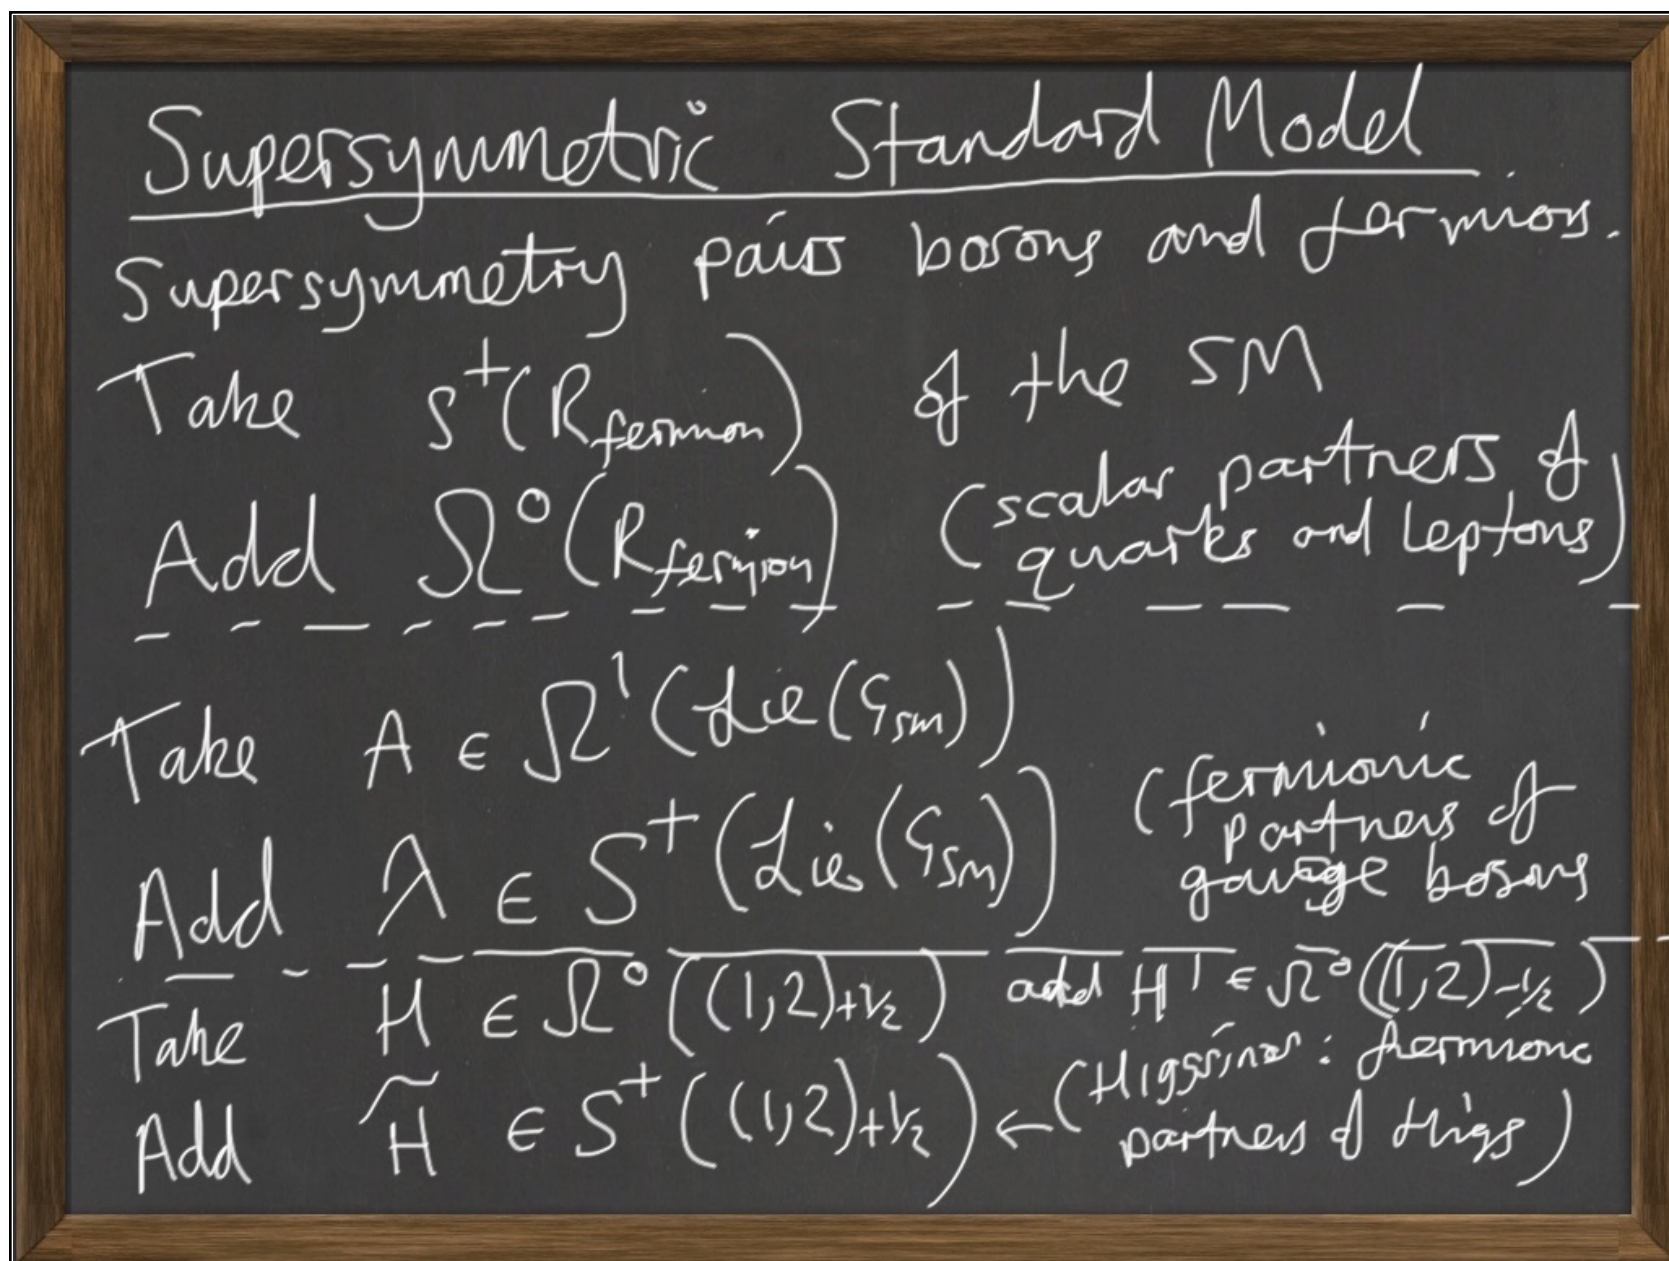 Supersymmetric Standard Model
Supersymmetry pairs bosons and fermions.
Take S⁺(R_fermion) of the SM
Add Ω⁰(R_fermion) (scalar partners of
quarks and leptons)
Take A ∈ Ω¹(Lie(G_SM))
Add λ ∈ S⁺(Lie(G_SM)) (fermionic
partners of
gauge bosons
Take H ∈ Ω⁰((1,2)+½) add H' ∈ Ω⁰((1,2)-½)
Add H̃ ∈ S⁺((1,2)+½) ← (Higgsinos: fermionic
partners of Higgs)